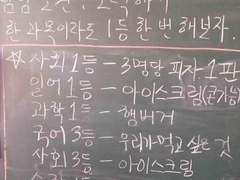 한 과목이라도 1등 한 번 해보자.
☆ 사회 1등 - 3명당 피자 1판
일어 1등 - 아이스크림(콘가능)
과학 1등 - 햄버거
국어 3등 - 우리가 먹고 싶은 것
사회 3등 - 아이스크림